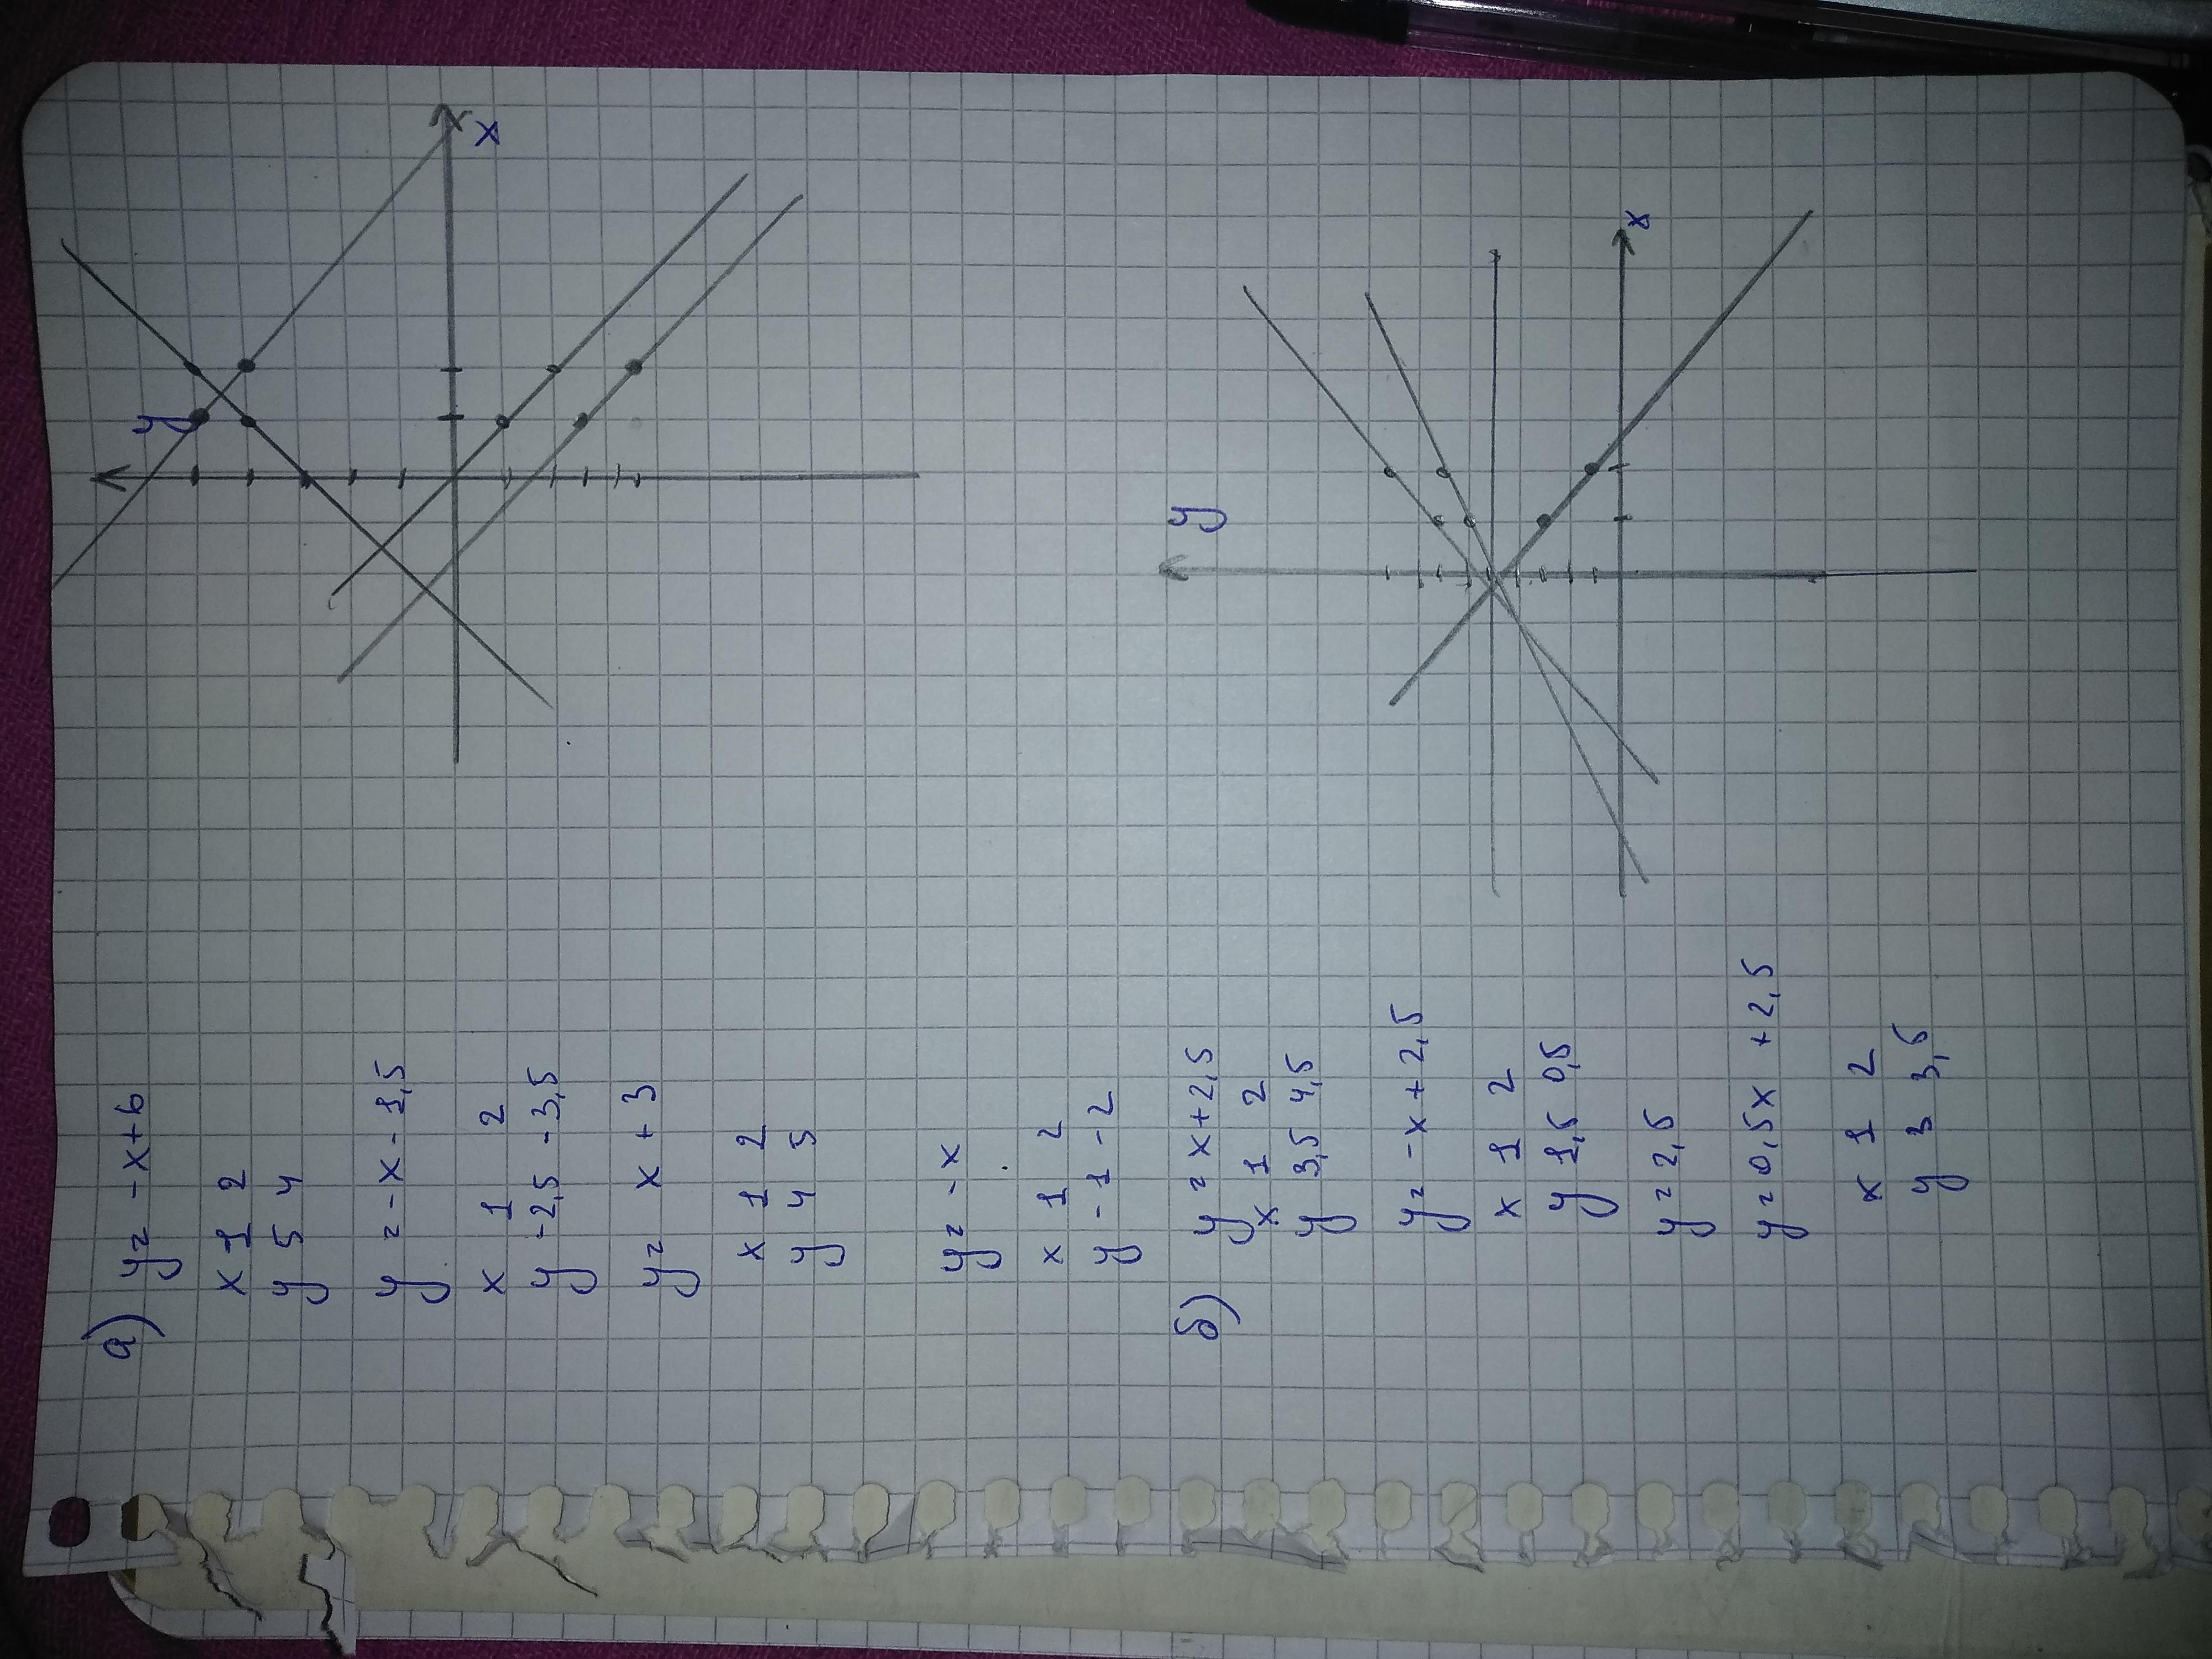 а) y = -x+6
x 1 2
y 5 4
y = -x - 1,5
x 1 2
y -2,5 -3,5
y = x + 3
x 1 2
y 4 5
y = -x
x 1 2
y -1 -2
y
x
б) y = x+2,5
x 1 2
y 3,5 4,5
y = -x + 2,5
x 1 2
y 1,5 0,5
y = 2,5
y = 0,5x + 2,5
x 1 2
y 3 3,5
y
x